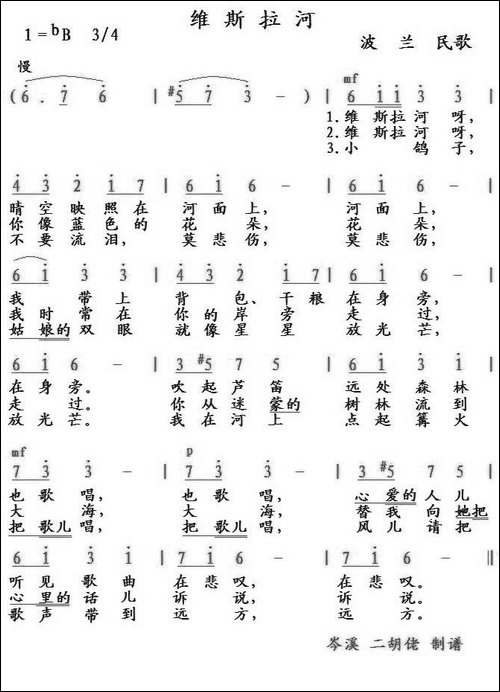 维斯拉河
1=bB 3/4
波兰 民歌
慢
mf
( 6. 7 6 | #5 7 3 - ) | 6 1 1 3 3 |
1.维斯拉河呀,
2.维斯拉河呀,
3.小鸽子,
4 3 2 1 7 | 6 1 6 - | 6 1 6 - |
晴空映照在 河面上, 河面上,
你像蓝色的 花朵, 花朵,
不要流泪, 莫悲伤, 莫悲伤,
6 1 3 3 | 4 3 2 1 7 | 6 1 6 - |
我带上 背包、干粮 在身旁,
我时常在 你的岸旁 走过,
姑娘的双眼 就像星星 放光芒,
6 1 6 - | 3 #5 7 5 | 6 1 3 1 |
在身旁。 吹起芦笛 远处森林
走过。 你从迷蒙的 树林流到
放光芒。 我在河上 点起篝火
mf p
7 3 3 - | 7 3 3 - | 3 #5 7 5 |
也歌唱, 也歌唱, 心爱的人儿
大海, 大海, 替我向她把
把歌儿唱, 把歌儿唱, 风儿请把
6 1 3 1 | 7 1 6 - | 7 1 6 - ‖
听见歌曲 在悲叹, 在悲叹。
心里的话儿 诉说, 诉说。
歌声带到 远方, 远方。
岑溪 二胡佬 制谱